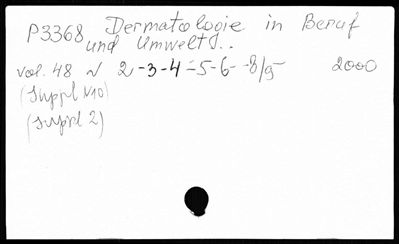 P3368 Dermatologie in Beruf
und Umwelt
vol. 48 N 2-3-4-5-6-8/9- 2000
(Suppl N10)
(Suppl 2)